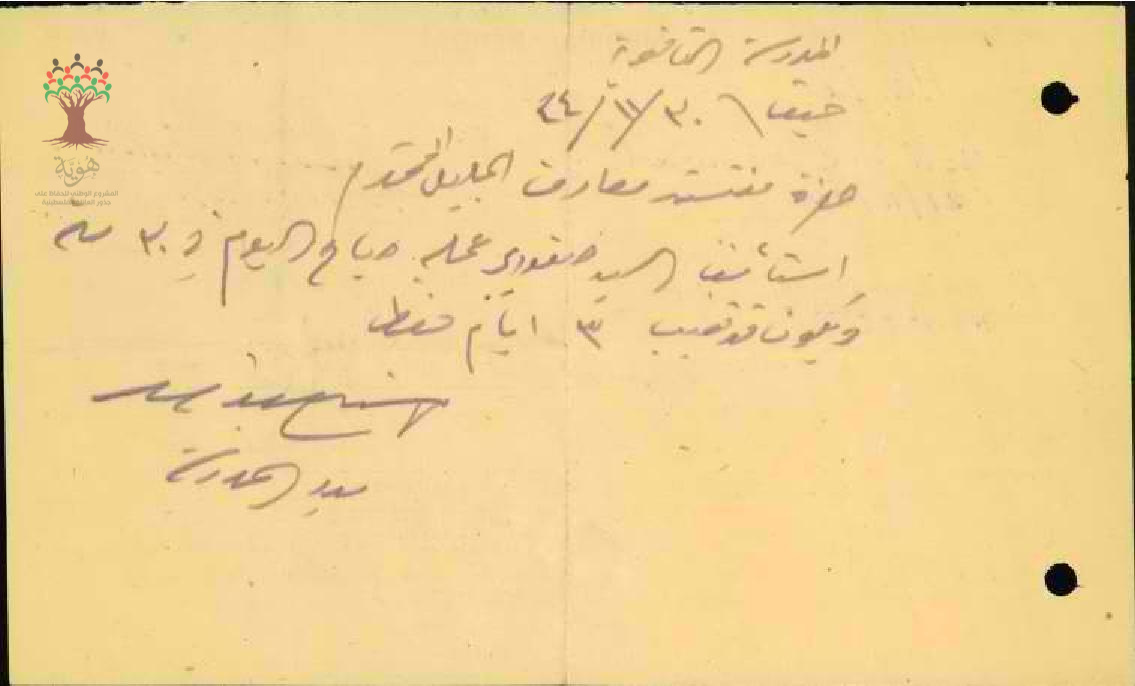 المدرسة الثانوية
٣٠/١١/٤٤
حضرة مفتش معارف الجليل المحترم
استأنف السيد عمله صباح اليوم في ٣٠ منه
ويكون قد تغيب ٣ ايام فقط
مدير المدرسة
هوية
المشروع الوطني للحفاظ على
جذور العائلة الفلسطينية